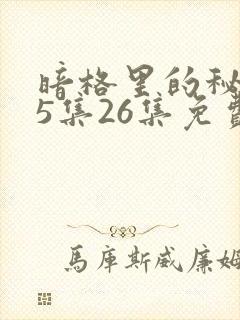 暗格里的秘
5集26集免
馬庫斯威廉姆